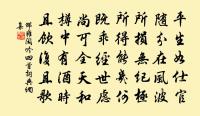 平生如仕宦
隨分在風波
所損無紀極
所得能幾何
既乖經世慮
尚可全天和
樽中有酒時
且飲復且歌
邵雍閒吟四首
集